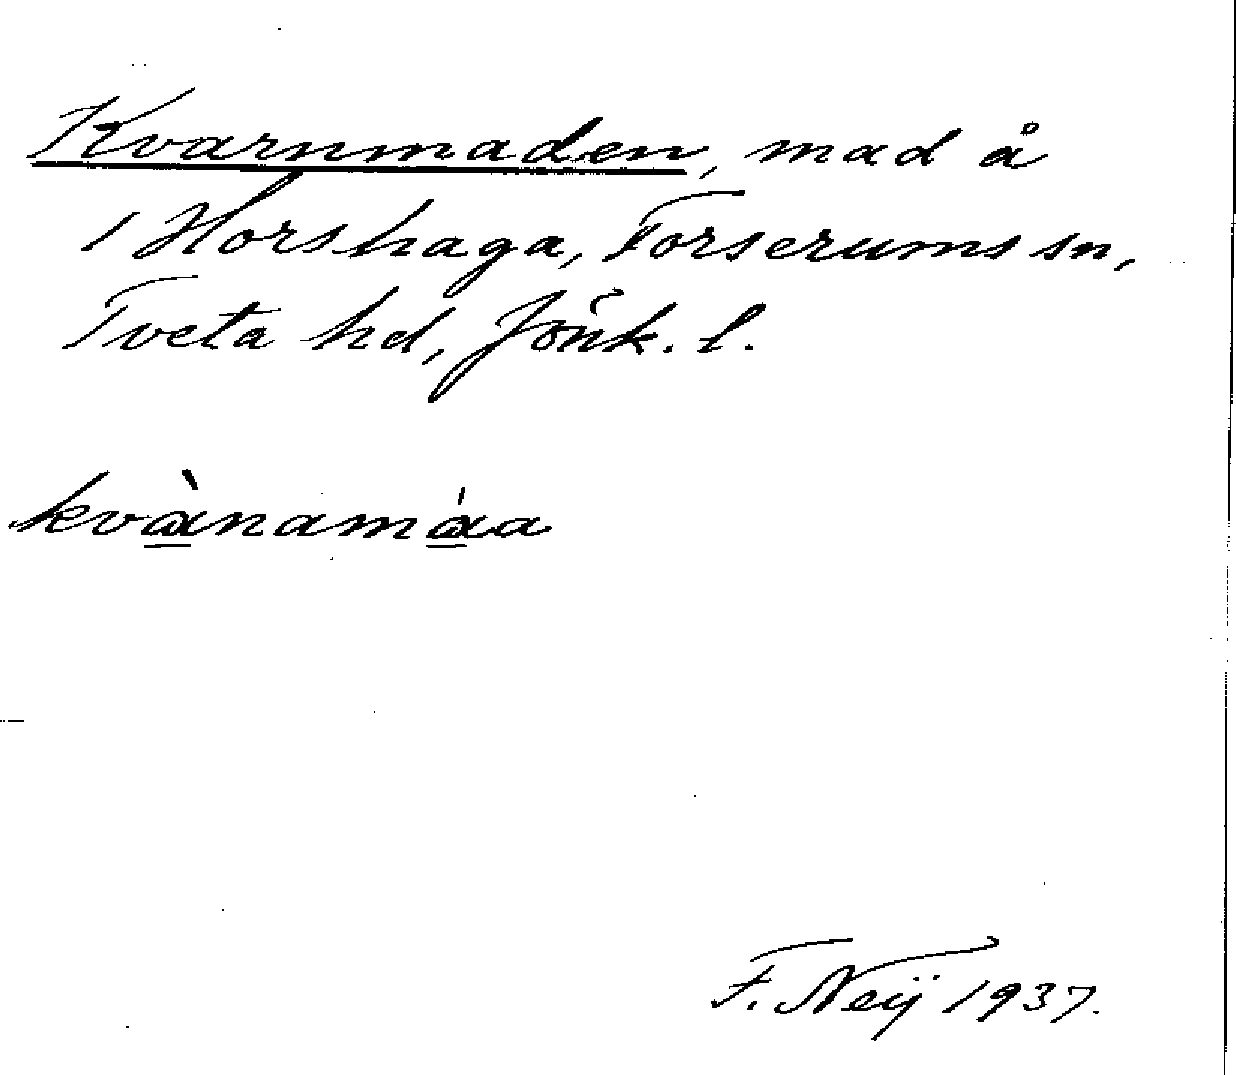 Kvarnmaden, mad å
1 Horshaga, Forserums sn,
Tveta hd, Jönk. l.
kvànamáa
F. Neij 1937.